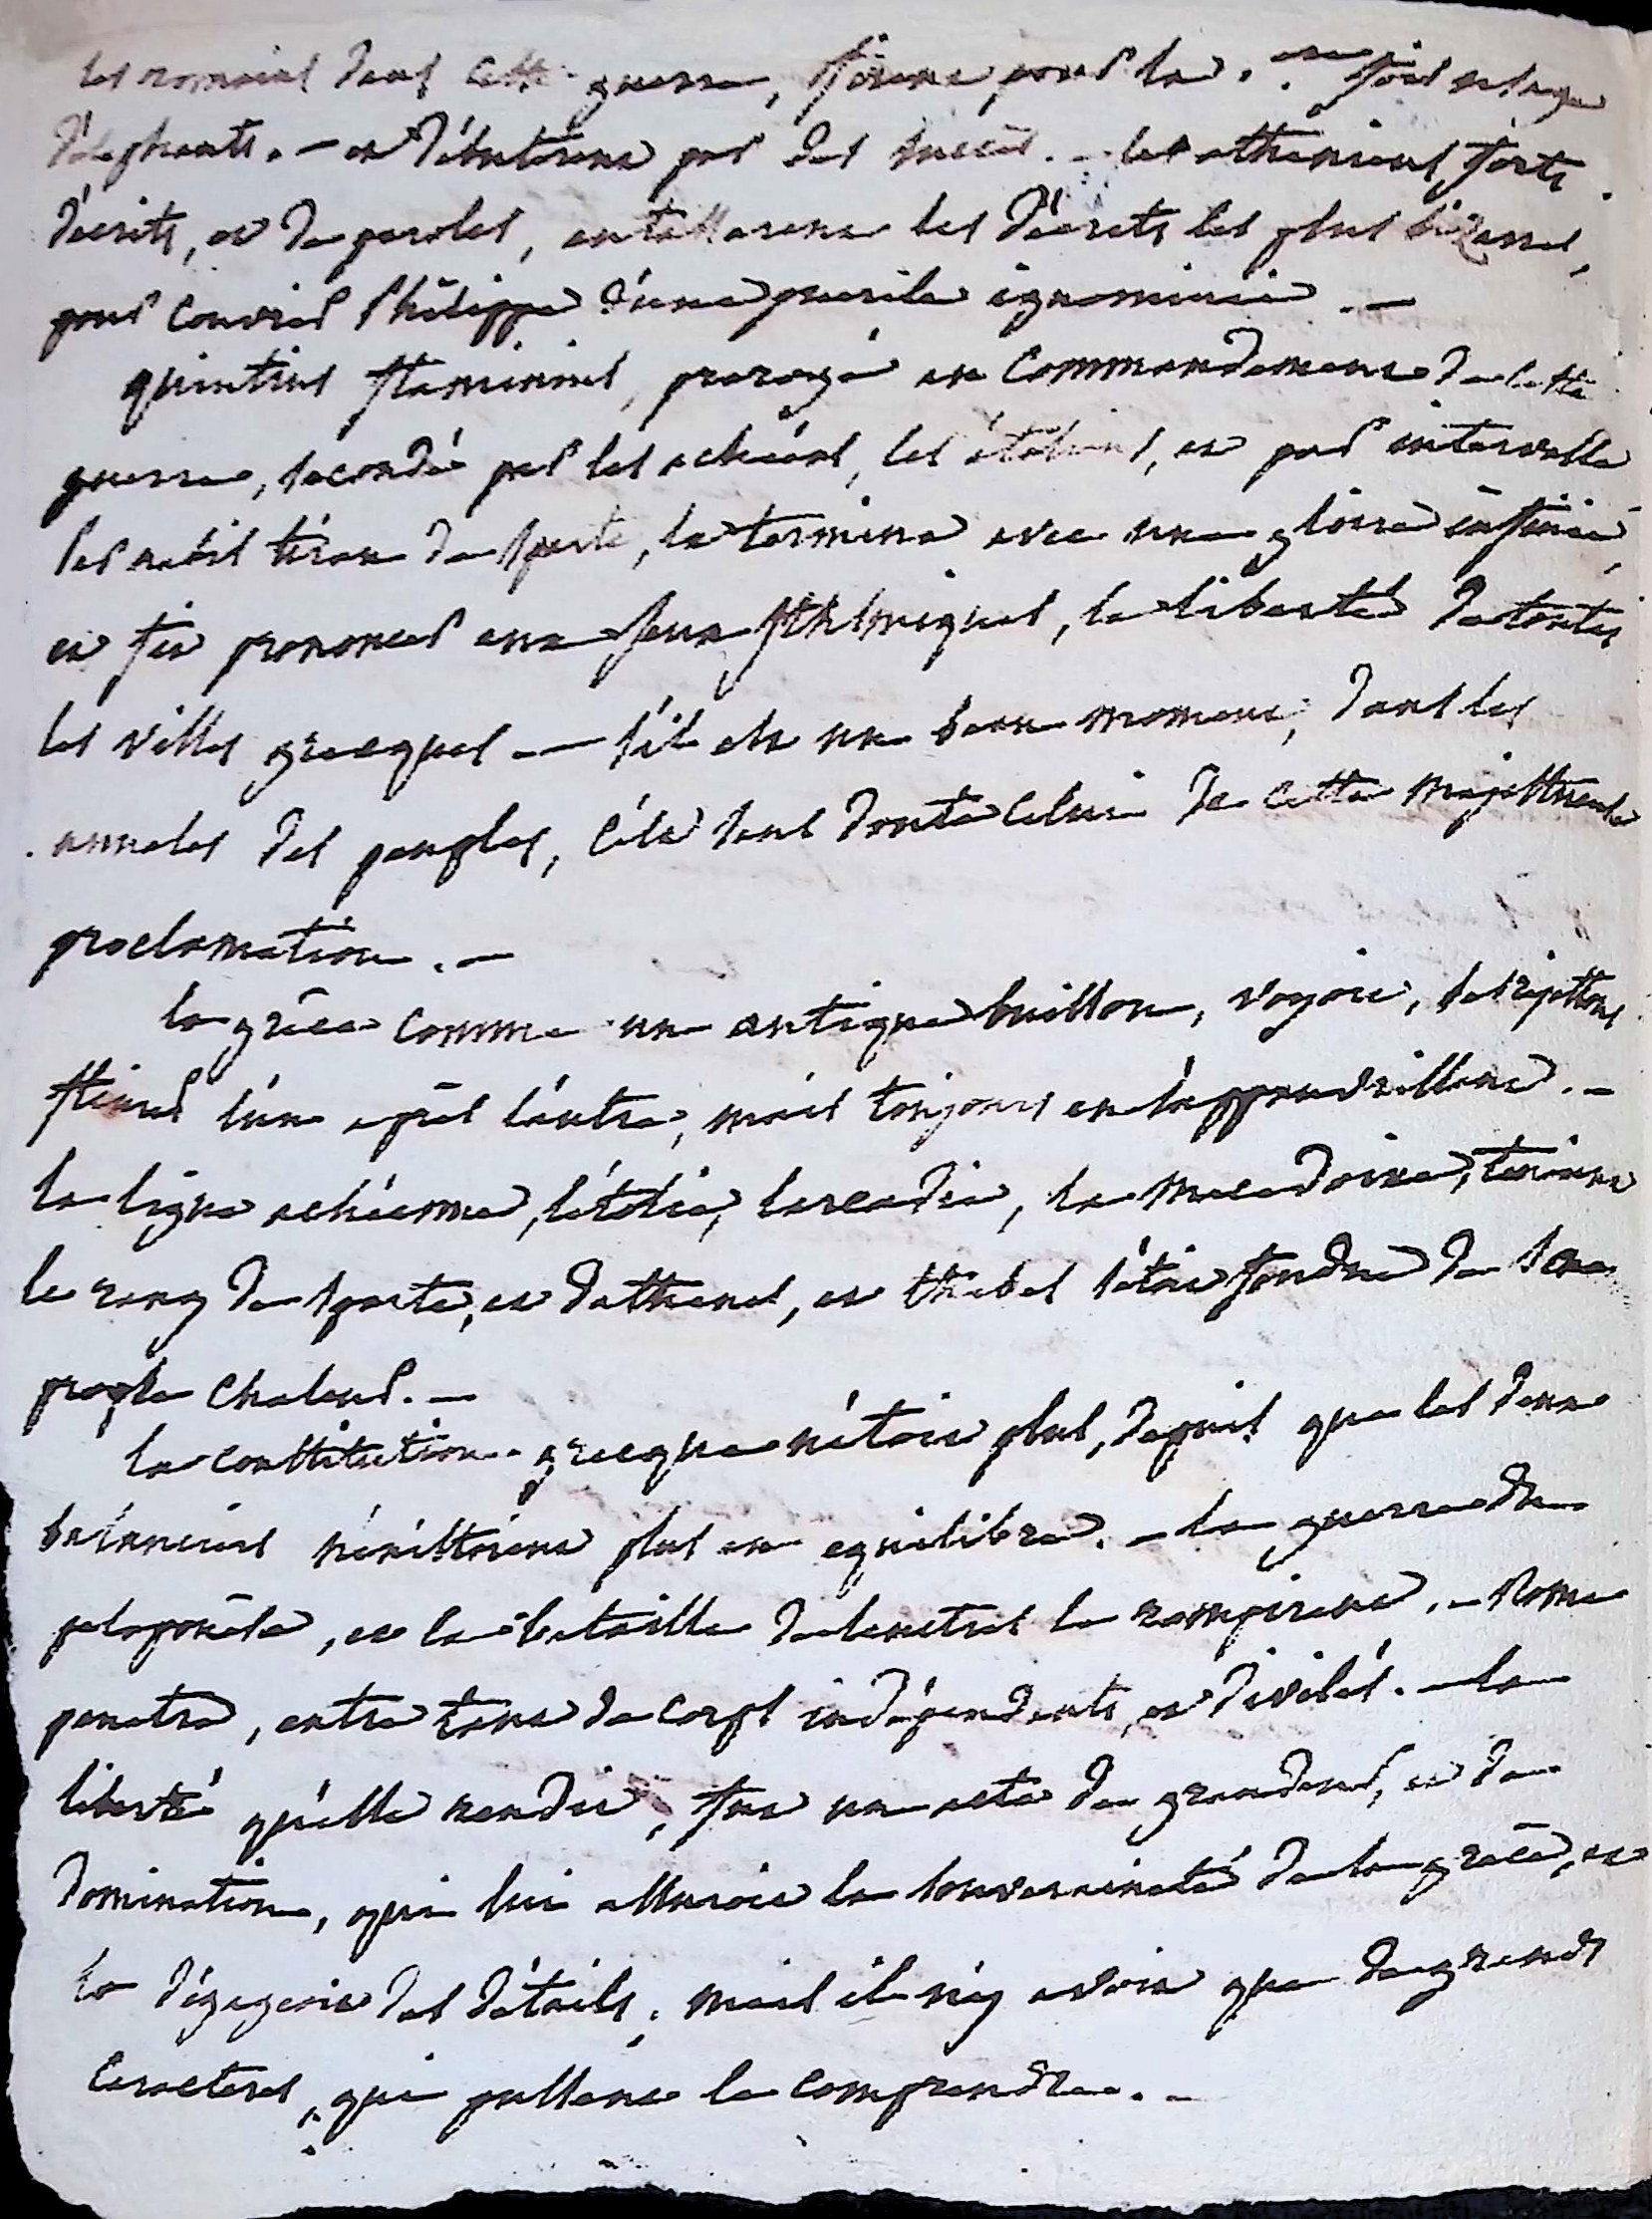 les romains dans cette guerre, firent pour la 1.ere fois usage
d'éléphants. - et débutèrent par des succès. - les athéniens forts
d'écrits, et de paroles, entassèrent les décrets les plus bizarres,
pour couvrir Philippe d'une puerile ignominie. -
quintius flaminius, prorogé au commandement de cette
guerre, secondé par les achéens, les étoliens, et par intervalle
par nabis tiran de sparte, la termina avec une gloire infinie,
et fit prononcer aux jeux isthmiques, la liberté de toutes
les villes grecques. - s'il est un beau moment, dans les
annales des peuples, c'est sans doute celui de cette majestueuse
proclamation. -
la grèce comme un antique buisson, voyoit, ses rejettons
fleurir l'un après l'autre, mais toujours en s'appauvrissant. -
la ligue achéenne, l'étolie, l'arcadie, la macedoine, tenoient
le rang de sparte, et d'athenes, et thebes s'étoit fondue de sa
propre chaleur. -
la constitution grecque n'étoit plus, depuis que les deux
balanciers n'éxistoient plus en equilibre. - la guerre du
peloponèse, et la bataille de leuctres la rompirent. - Rome
penetra, entre tant de corps indépendants, et divisés. - la
liberté qu'elle rendit, fut un acte de grandeur, et de
domination, qui lui assuroit la souveraineté de la grèce, et
la dégageoit des détails, mais il n'y avoit que de grands
caracteres, qui pussent le comprendre. -